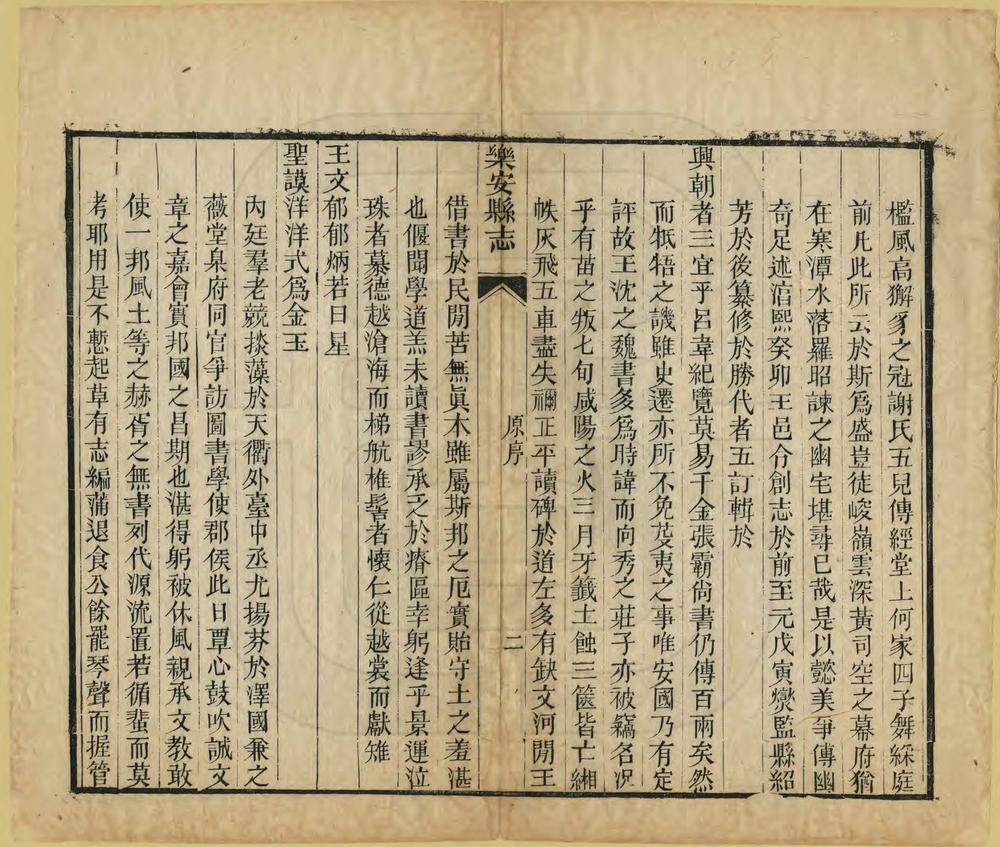 檻風高獬豸之冠謝氏五兒傳經堂上何家四子舞綵庭
前凡此所云於斯爲盛豈徒峻嶺雲深黃司空之幕府猶
在寒潭水落羅昭諫之幽宅堪尋已哉是以懿美爭傳幽
奇足述淳熙癸卯王邑令創志於前至元戊寅爕監縣紹
芳於後纂修於勝代者五訂輯於
興朝者三宜乎呂韋紀覽莫易千金張霸尙書仍傳百兩矣然
而牴牾之譏雖史遷亦所不免芟夷之事唯安國乃有定
評故王沈之魏書多爲時諱而向秀之莊子亦被竊名况
乎有苗之叛七旬咸陽之火三月牙籤土蝕三篋皆亡緗
帙灰飛五車盡失禰正平讀碑於道左多有缺文河閒王
樂安縣志
原序
二
借書於民閒苦無眞本雖屬斯邦之厄實貽守土之羞湛
也偃聞學道羔未讀書謬承乏於瘠區幸躬逢乎景運泣
珠者慕德越滄海而梯航椎髻者懷仁從越裳而獻雉
王文郁郁炳若日星
聖謨洋洋式爲金玉
內廷羣老競掞藻於天衢外臺中丞尤揚芬於澤國兼之
薇堂臬府同官爭訪圖書學使郡侯此日覃心鼓吹誠文
章之嘉會實邦國之昌期也湛得躬被休風親承文教敢
使一邦風土等之赫胥之無書列代源流置若循蜚而莫
考耶用是不慙起草有志編蒲退食公餘罷琴聲而握管